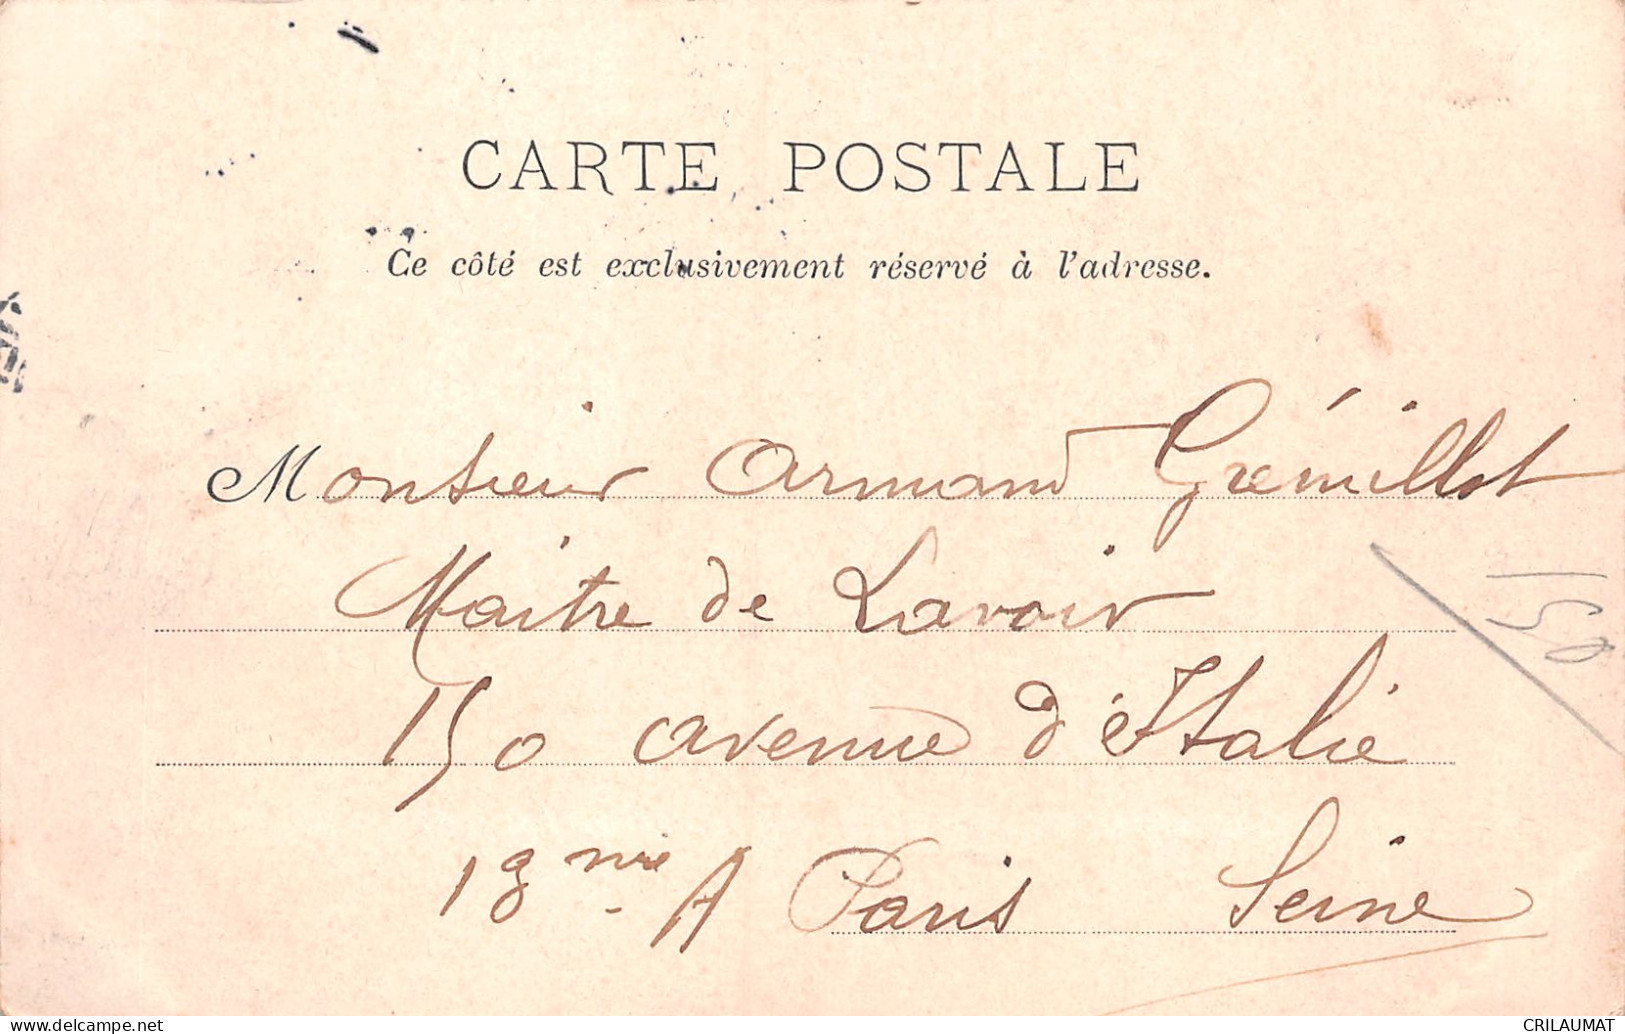 CARTE POSTALE
Ce côté est exclusivement réservé à l'adresse.
Monsieur Armand Grémillot
Maitre de Lavoir
150 avenue d'Italie
13me A Paris Seine
150
delcampe.net
CRILAUMAT